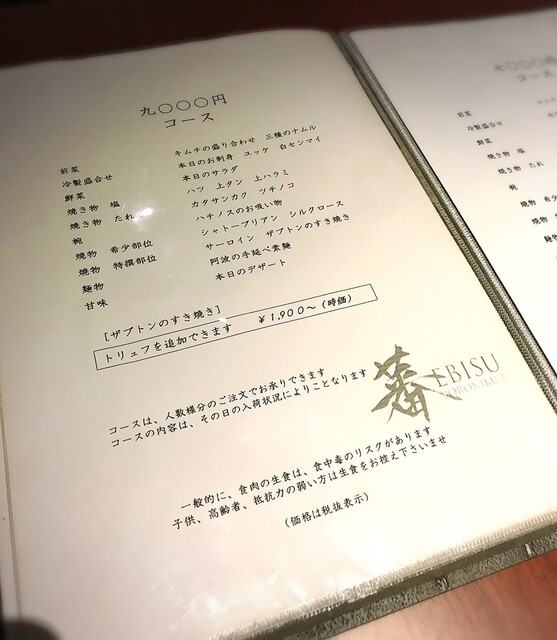 九〇〇〇円
コース
前菜 キムチの盛り合わせ 三種のナムル
冷製盛合せ 本日のお刺身 ユッケ 白センマイ
鮮菜 本日のサラダ
焼き物 塩 ハツ 上タン 上ハラミ
焼き物 たれ カタサンカク ツチノコ
椀 ハチノスのお吸い物
焼物 希少部位 シャトーブリアン シルクロース
焼物 特撰部位 サーロイン ザブトンのすき焼き
麺物 阿波の手延べ素麺
甘味 本日のデザート
[ザブトンのすき焼き]
トリュフを追加できます ¥1,900～(時価)
コースは、人数様分のご注文でお承りできます
コースの内容は、その日の入荷状況によりことなります
蕃 EBISU
一般的に、食肉の生食は、食中毒のリスクがあります
子供、高齢者、抵抗力の弱い方は生食をお控え下さいませ
(価格は税抜表示)
七〇〇〇円
コース
前菜
冷製盛合せ
鮮菜
焼き物 塩
焼き物 たれ
椀
焼物 希少
焼物
麺物